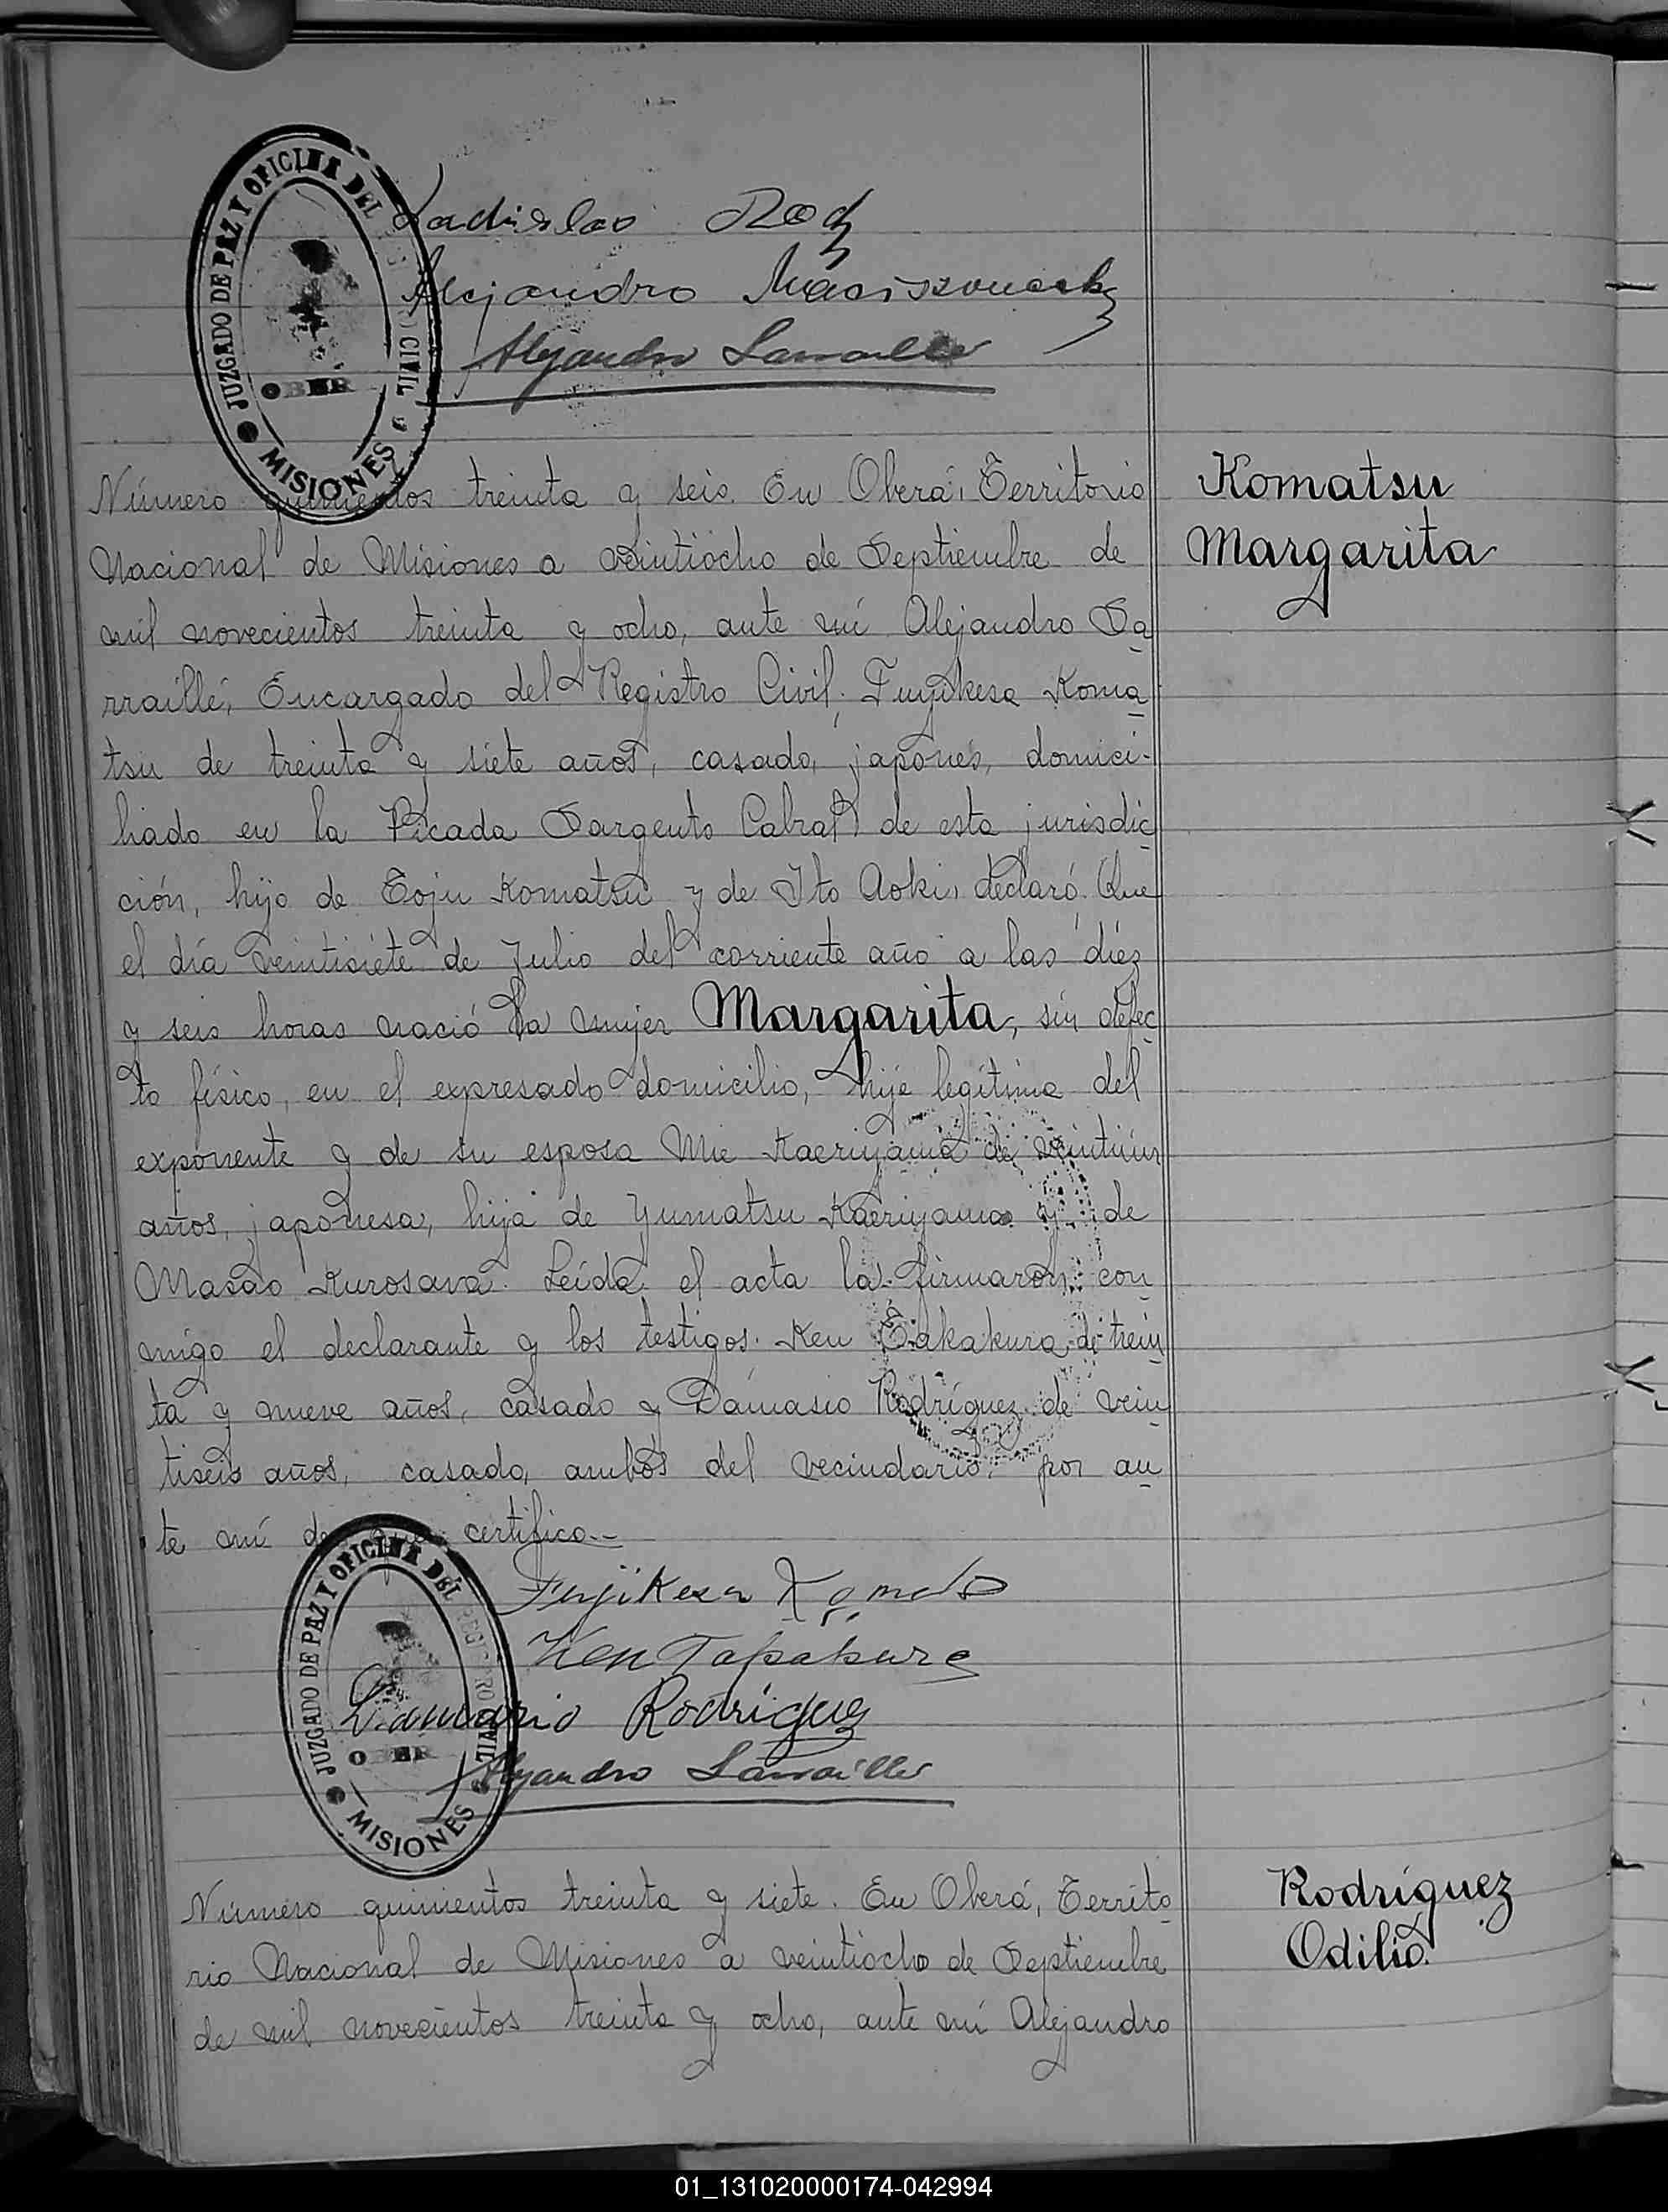 JUZGADO DE PAZ Y OFICINA DEL REGISTRO CIVIL
OBERA
MISIONES
Ladislao
Alejandro
Alejandro Larraillé
Número quinientos treinta y seis. En Oberá, Territorio
Komatsu
Nacional de Misiones a veintiocho de Septiembre de
Margarita
mil novecientos treinta y ocho, ante mí Alejandro La
rraillé, Encargado del Registro Civil, Fuyikesa Koma
tsu de treinta y siete años, casado, japonés, domici-
liado en la Picada Sargento Cabral de esta jurisdic
ción, hijo de Toju Komatsu y de Ito Aoki, declaró: Que
el día veintisiete de Julio del corriente año a las diéz
y seis horas nació la mujer Margarita, sin defec
to físico, en el expresado domicilio, hija legítima del
exponente y de su esposa Mie Kaeriyama de veintiún
años, japonesa, hija de Yumatsu Kaeriyama y de
Masao Kurosava. Leída el acta la firmaron con
migo el declarante y los testigos: Ken Takakura de trein
ta y nueve años, casado y Dámasio Rodríguez de vein
tiseis años, casado, ambos del vecindario, por an
te mí de que certifico.-
JUZGADO DE PAZ Y OFICINA DEL REGISTRO CIVIL
OBERA
MISIONES
Fujikesa
Ken Takakura
Damasio Rodriguez
Alejandro Larraillé
Número quinientos treinta y siete. En Oberá, Territo
Rodríguez
rio Nacional de Misiones a veintiocho de Septiembre
Odilio.
de mil novecientos treinta y ocho, ante mí Alejandro
01_131020000174-042994